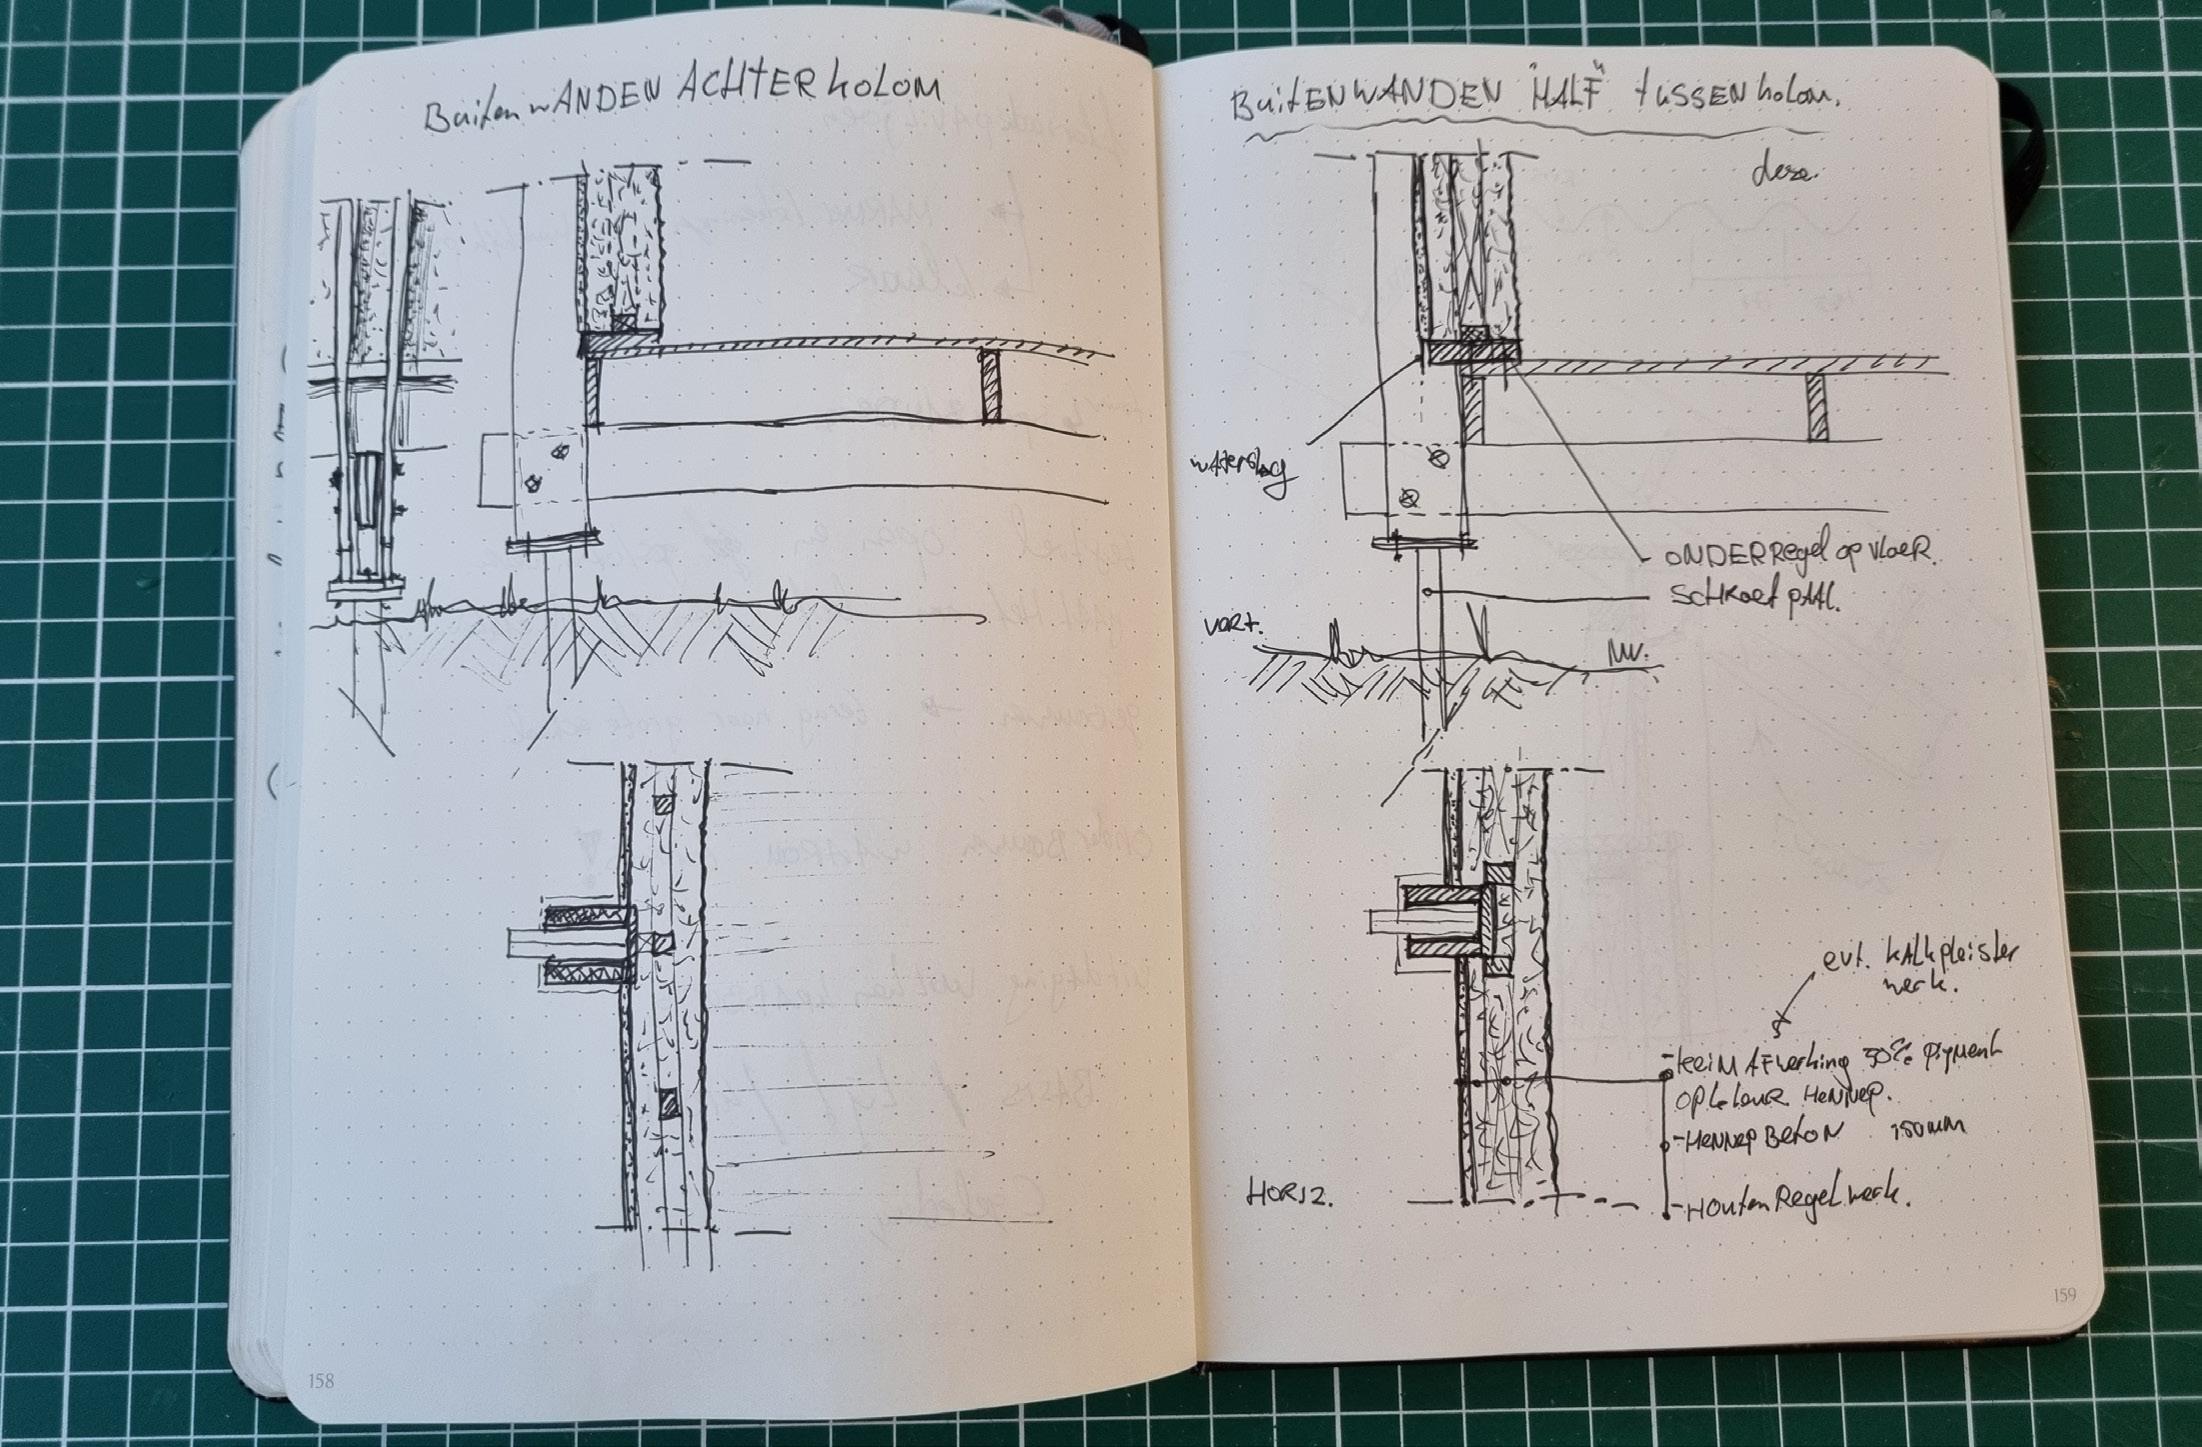 BuitenwANDEN ACHTERkolom
158
BuitENWANDEN "HALF" tussenkolom.
deze.
waterslag
ONDERRegel op vloer.
SCHROEFpAAL.
VERT.
MV.
evt. kALkpleister
werk.
-keim AFwerking 50% pigment
op kleur HeNNep.
-HeNNep BetoN 150mm
HORIZ.
-HoutenRegelwerk.
159